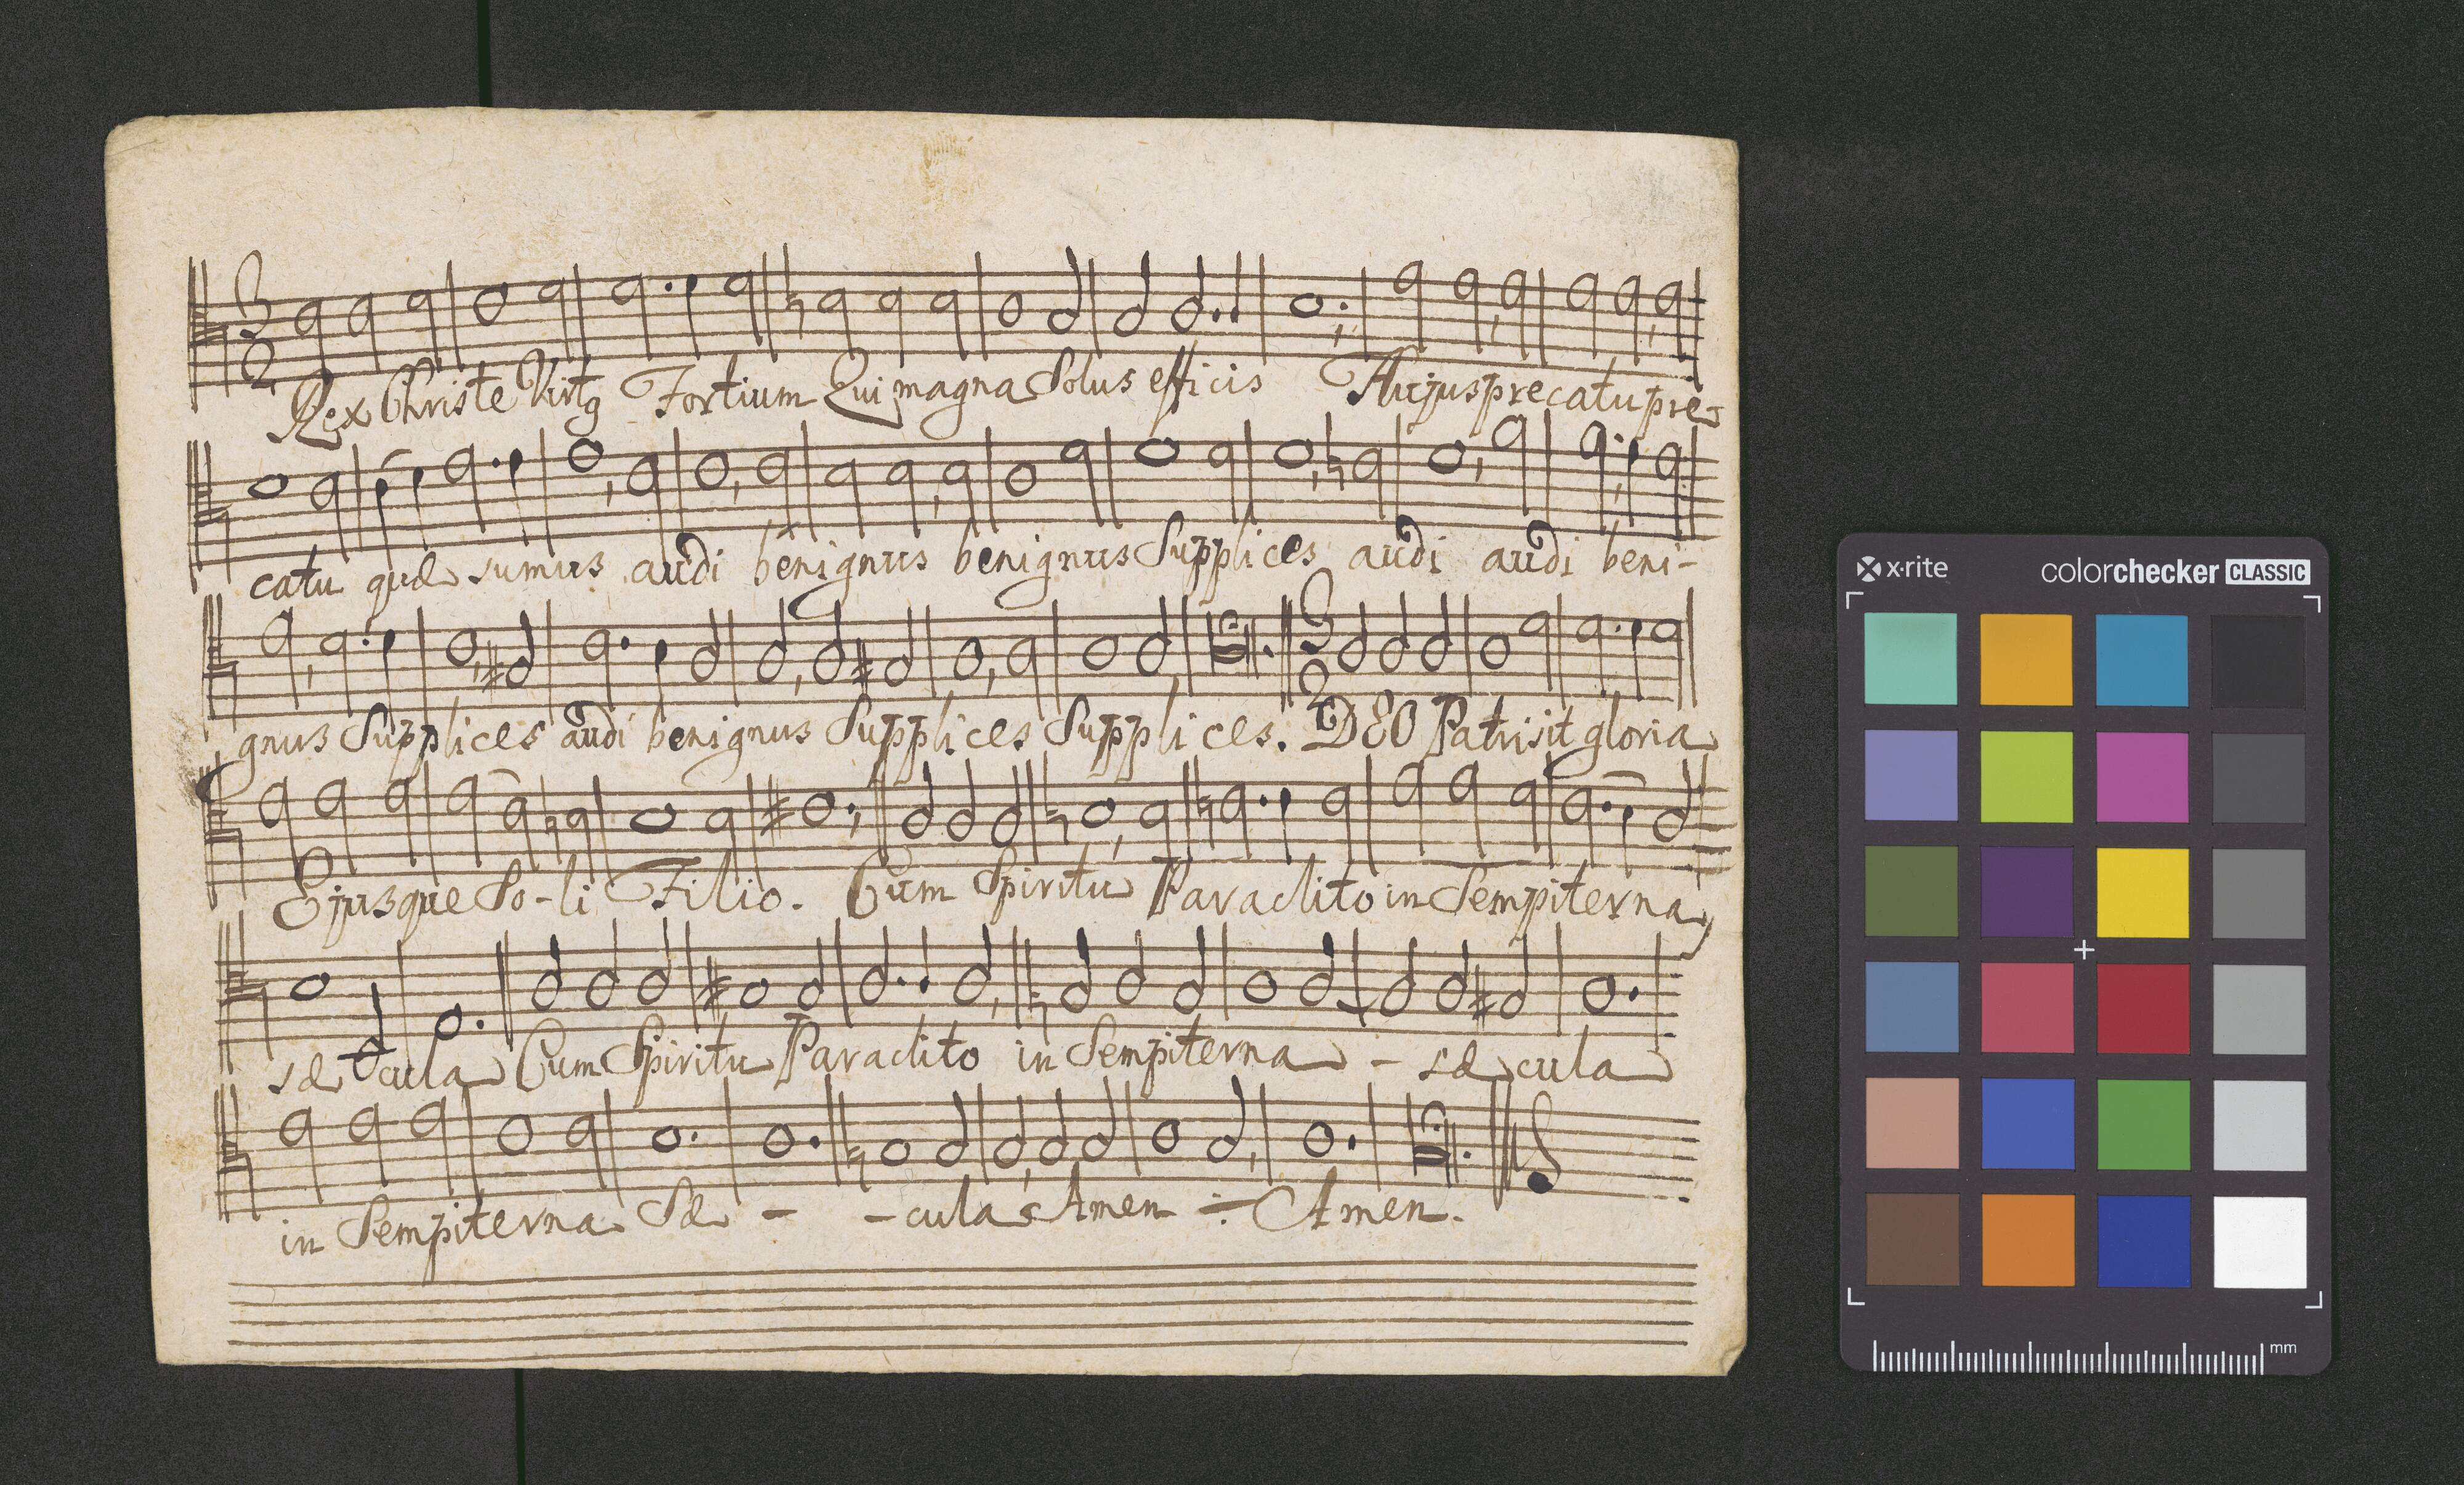 3
2
Rex Christe Virtg Fortium Qui magna Solus efficis Hujus precatu pre-
catu quæ sumus audi benignus benignus Supplices audi audi beni-
3
2
gnus Supplices audi benignus Supplices Supplices. DEO Patri sit gloria
Ejusque So-li Filio. Cum Spiritu Paraclito in Sempiterna
sæ cula Cum Spiritu Paraclito in Sempiterna - sæ cula
in Sempiterna Sæ - - cula Amen ÷ Amen.
x·rite colorchecker CLASSIC
mm